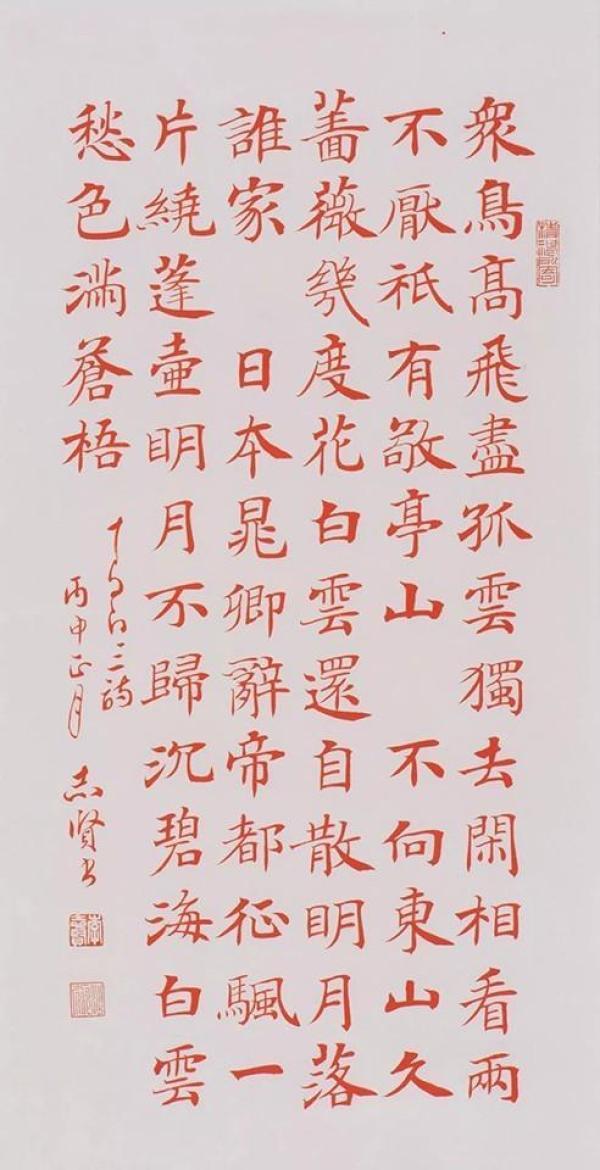 衆鳥髙飛盡孤雲獨去閑相看兩
不厭祇有敬亭山 不向東山久
薔薇幾度花白雲還自散明月落
誰家 日本晁卿辭帝都征颿一
片繞蓬壺明月不歸沉碧海白雲
愁色滿蒼梧
三詩
丙申正月 志贤书